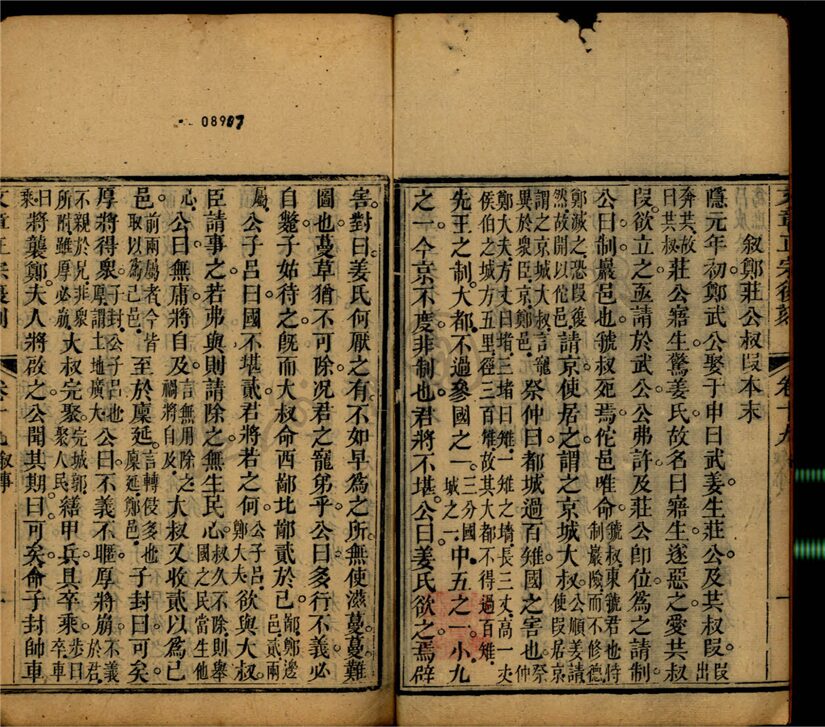 08907
文章正宗復刻　卷十九
叙鄭莊公叔段本末
隱元年初鄭武公娶于申曰武姜生莊公及共叔段段出
奔共故曰共叔莊公寤生驚姜氏故名曰寤生遂惡之愛共叔
段欲立之亟請於武公公弗許及莊公卽位爲之請制
公曰制巖邑也虢叔死焉佗邑唯命虢叔東虢君也恃制巖險而不修德
鄭滅之恐段復然故開以佗邑請京使居之謂之京城大叔公順姜請使段居京
謂之京城大叔言寵異於衆臣京鄭邑祭仲曰都城過百雉國之害也祭仲
鄭大夫方丈曰堵三堵曰雉一雉之墻長三丈高一丈侯伯之城方五里徑三百雉故其大都不得過百雉
先王之制大都不過參國之一三分國城之一中五之一小九
之一今京不度非制也君將不堪公曰姜氏欲之焉辟
害對曰姜氏何厭之有不如早爲之所無使滋蔓蔓難
圖也蔓草猶不可除况君之寵弟乎公曰多行不義必
自斃子姑待之旣而大叔命西鄙北鄙貳於己鄙鄭邊邑貳兩
屬公子呂曰國不堪貳君將若之何公子呂鄭大夫欲與大叔
臣請事之若弗與則請除之無生民心叔久不除則舉國之民當生他
心公曰無庸將自及言無用除之禍將自及大叔又收貳以爲己
邑前兩屬者今皆取以爲己邑至於廩延言轉侵多也廩延鄭邑子封曰可矣
厚將得衆子封公子呂也厚謂土地廣大公曰不義不暱厚將崩不義於君
不親於兄非衆所附雖厚必崩大叔完聚完城郭聚人民繕甲兵具卒乘步曰卒車
曰乘將襲鄭夫人將啟之公聞其期曰可矣命子封帥車
文章正宗復刻　卷十九　叙事　一